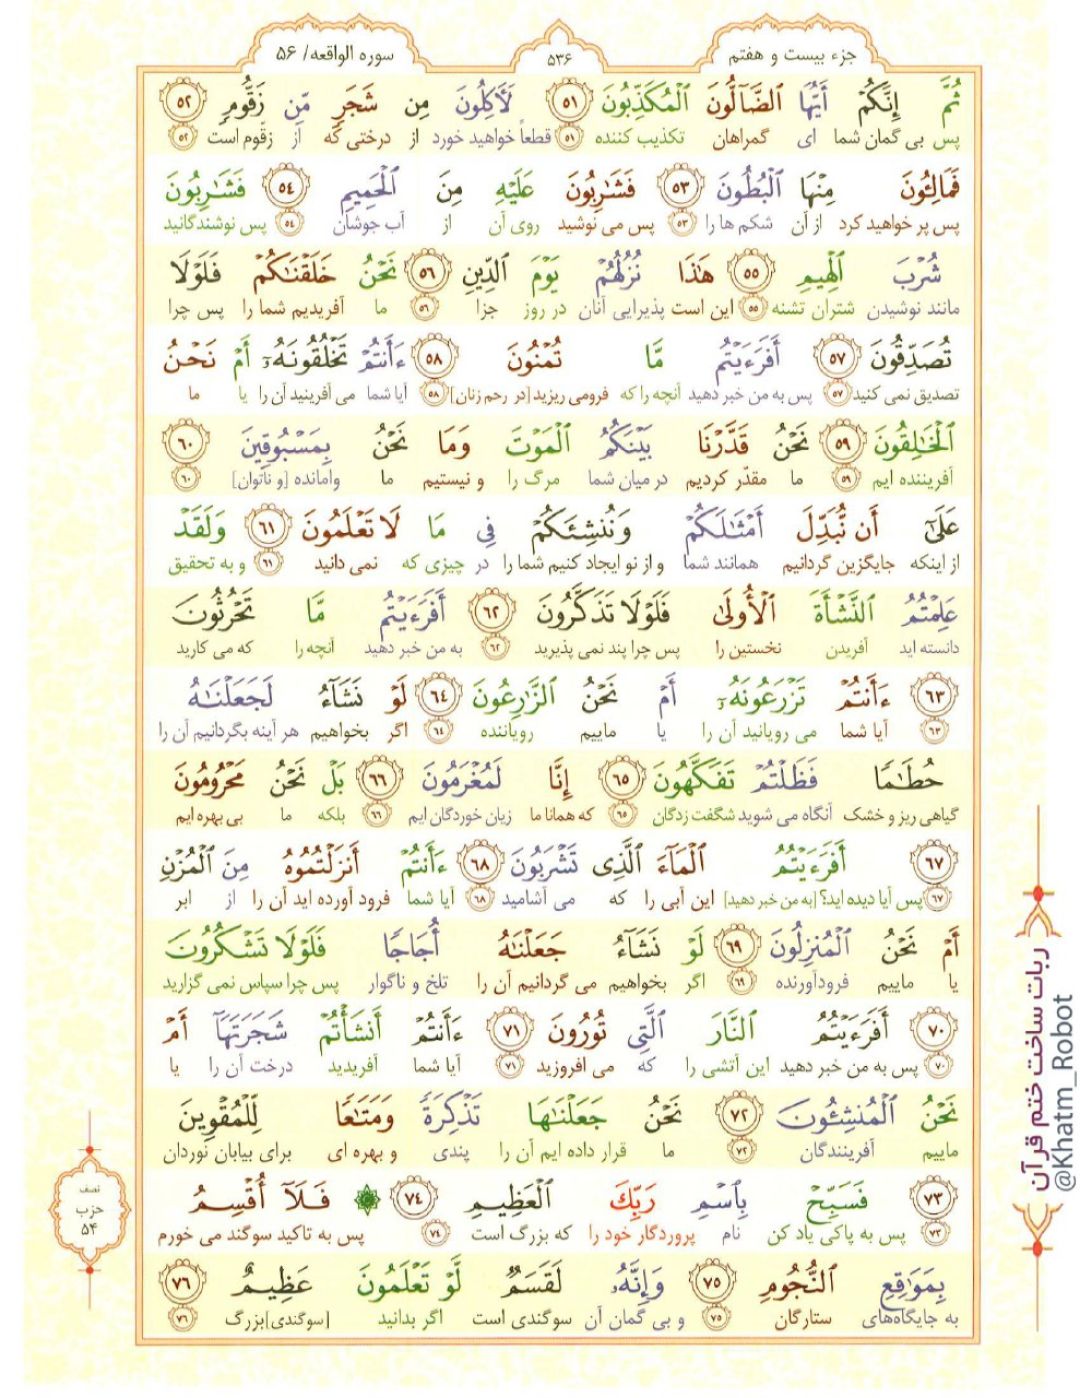 جزء بیست و هفتم
۵۳۶
سوره الواقعه/ ۵۶
ثُمَّ إِنَّكُمْ أَيُّهَا ٱلضَّآلُّونَ ٱلْمُكَذِّبُونَ ۵۱ لَأَكِلُونَ مِن شَجَرٍ مِّن زَقُّومٍ ۵۲
پس بی گمان شما ای گمراهان تکذیب کننده ۵۱ قطعاً خواهید خورد از درختی که از زقّوم است ۵۲
فَمَالِـُٔونَ مِنْهَا ٱلْبُطُونَ ۵۳ فَشَـٰرِبُونَ عَلَيْهِ مِنَ ٱلْحَمِيمِ ۵۴ فَشَـٰرِبُونَ
پس پر خواهید کرد از آن شکم ها را ۵۳ پس می نوشید روی آن از آب جوشان ۵۴ پس نوشندگانید
شُرْبَ ٱلْهِيمِ ۵۵ هَـٰذَا نُزُلُهُمْ يَوْمَ ٱلدِّينِ ۵۶ نَحْنُ خَلَقْنَـٰكُمْ فَلَوْلَا
مانند نوشیدن شتران تشنه ۵۵ این است پذیرایی آنان در روز جزا ۵۶ ما آفریدیم شما را پس چرا
تُصَدِّقُونَ ۵۷ أَفَرَءَيْتُم مَّا تُمْنُونَ ۵۸ ءَأَنتُمْ تَخْلُقُونَهُۥٓ أَمْ نَحْنُ
تصدیق نمی کنید ۵۷ پس به من خبر دهید آنچه را که فرومی ریزید [در رحم زنان] ۵۸ آیا شما می آفرینید آن را یا ما
ٱلْخَـٰلِقُونَ ۵۹ نَحْنُ قَدَّرْنَا بَيْنَكُمُ ٱلْمَوْتَ وَمَا نَحْنُ بِمَسْبُوقِينَ ۶۰
آفریننده ایم ۵۹ ما مقدّر کردیم در میان شما مرگ را و نیستیم ما وامانده [و ناتوان] ۶۰
عَلَىٰٓ أَن نُّبَدِّلَ أَمْثَـٰلَكُمْ وَنُنشِئَكُمْ فِى مَا لَا تَعْلَمُونَ ۶۱ وَلَقَدْ
از اینکه جایگزین گردانیم همانند شما و از نو ایجاد کنیم شما را در چیزی که نمی دانید ۶۱ و به تحقیق
عَلِمْتُمُ ٱلنَّشْأَةَ ٱلْأُولَىٰ فَلَوْلَا تَذَكَّرُونَ ۶۲ أَفَرَءَيْتُم مَّا تَحْرُثُونَ
دانسته اید آفریدن نخستین را پس چرا پند نمی پذیرید ۶۲ به من خبر دهید آنچه را که می کارید
۶۳ ءَأَنتُمْ تَزْرَعُونَهُۥٓ أَمْ نَحْنُ ٱلزَّٰرِعُونَ ۶۴ لَوْ نَشَآءُ لَجَعَلْنَـٰهُ
۶۳ آیا شما می رویانید آن را یا ماییم رویاننده ۶۴ اگر بخواهیم هر آینه بگردانیم آن را
حُطَـٰمًا فَظَلْتُمْ تَفَكَّهُونَ ۶۵ إِنَّا لَمُغْرَمُونَ ۶۶ بَلْ نَحْنُ مَحْرُومُونَ
گیاهی ریز و خشک آنگاه می شوید شگفت زدگان ۶۵ که همانا ما زیان خوردگان ایم ۶۶ بلکه ما بی بهره ایم
۶۷ أَفَرَءَيْتُمُ ٱلْمَآءَ ٱلَّذِى تَشْرَبُونَ ۶۸ ءَأَنتُمْ أَنزَلْتُمُوهُ مِنَ ٱلْمُزْنِ
۶۷ پس آیا دیده اید؟ [به من خبر دهید] این آبی را که می آشامید ۶۸ آیا شما فرود آورده اید آن را از ابر
أَمْ نَحْنُ ٱلْمُنزِلُونَ ۶۹ لَوْ نَشَآءُ جَعَلْنَـٰهُ أُجَاجًا فَلَوْلَا تَشْكُرُونَ
یا ماییم فرودآورنده ۶۹ اگر بخواهیم می گردانیم آن را تلخ و ناگوار پس چرا سپاس نمی گزارید
۷۰ أَفَرَءَيْتُمُ ٱلنَّارَ ٱلَّتِى تُورُونَ ۷۱ ءَأَنتُمْ أَنشَأْتُمْ شَجَرَتَهَآ أَمْ
۷۰ پس به من خبر دهید این آتشی را که می افروزید ۷۱ آیا شما آفریدید درخت آن را یا
نَحْنُ ٱلْمُنشِـُٔونَ ۷۲ نَحْنُ جَعَلْنَـٰهَا تَذْكِرَةً وَمَتَـٰعًا لِّلْمُقْوِينَ
ماییم آفرینندگان ۷۲ ما قرار داده ایم آن را پندی و بهره ای برای بیابان نوردان
۷۳ فَسَبِّحْ بِٱسْمِ رَبِّكَ ٱلْعَظِيمِ ۷۴ فَلَآ أُقْسِمُ
۷۳ پس به پاکی یاد کن نام پروردگار خود را که بزرگ است ۷۴ پس به تاکید سوگند می خورم
بِمَوَٰقِعِ ٱلنُّجُومِ ۷۵ وَإِنَّهُۥ لَقَسَمٌ لَّوْ تَعْلَمُونَ عَظِيمٌ ۷۶
به جایگاه‌های ستارگان ۷۵ و بی گمان آن سوگندی است اگر بدانید [سوگندی] بزرگ ۷۶
نصف
حزب
۵۴
ربات ساخت ختم قرآن
@Khatm_Robot